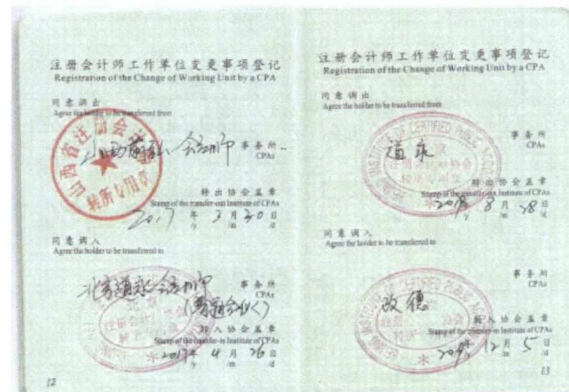 注册会计师工作单位变更事项登记
Registration of the Change of Working Unit by a CPA
同意调出
Agree the holder to be transferred from
山西省注册会计师
转所专用章
事务所
CPAs
转出协会盖章
Stamp of the transfer-out Institute of CPAs
2017 年 3 月 30 日
/y /m /d
同意调入
Agree the holder to be transferred to
事务所
CPAs
转入协会盖章
Stamp of the transfer-in Institute of CPAs
2017 年 4 月 26 日
/y /m /d
12
注册会计师工作单位变更事项登记
Registration of the Change of Working Unit by a CPA
同意调出
Agree the holder to be transferred from
BEIJING INSTITUTE OF CERTIFIED PUBLIC
事务所
CPAs
转出协会盖章
Stamp of the transfer-out Institute of CPAs
2018 8 28
/y /m /d
同意调入
Agree the holder to be transferred to
事务所
CPAs
转入协会盖章
Stamp of the transfer-in Institute of CPAs
12 月 5 日
/y /m /d
13